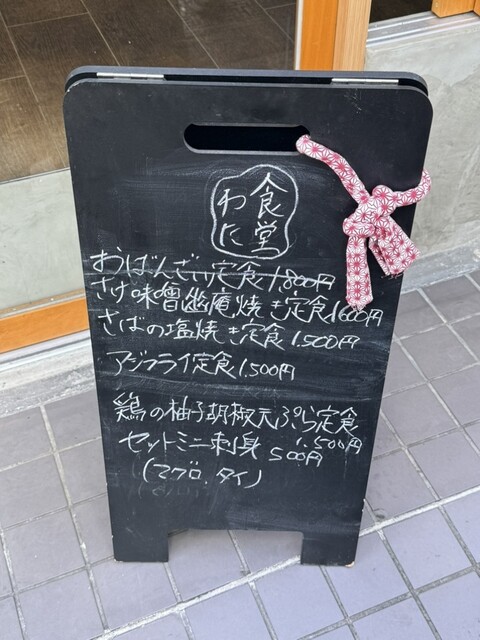 食堂
わた
おばんざい定食1,800円
さけ味噌幽庵焼き定食1600円
さばの塩焼き定食1.500円
アジフライ定食1.500円
鶏の柚子胡椒天ぷら定食
1.500円
セットミニ刺身 500円
(マグロ、タイ)